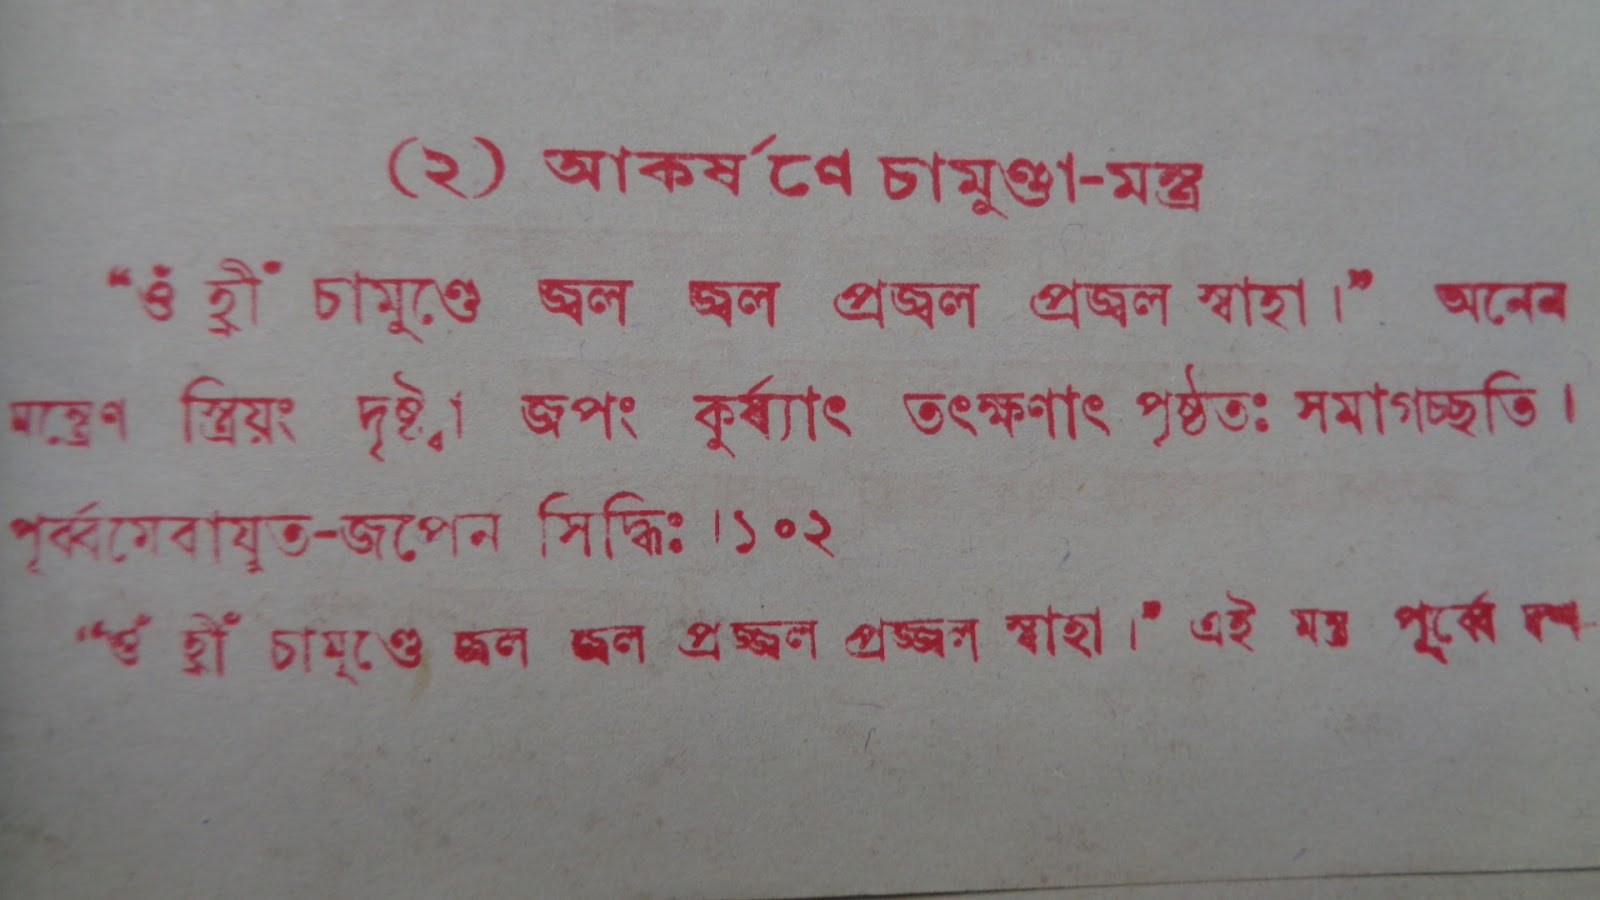 (২) আকর্ষণে চামুণ্ডা-মন্ত্র
“ওঁ হ্রীঁ চামুণ্ডে জ্বল জ্বল প্রজ্বল প্রজ্বল স্বাহা।” অনেন
মন্ত্রেণ স্ত্রিয়ং দৃষ্ট্বা জপং কুর্য্যাৎ তৎক্ষণাৎ পৃষ্ঠতঃ সমাগচ্ছতি।
পূর্ব্বমেবাযুত-জপেন সিদ্ধিঃ।১০২
“ওঁ হ্রীঁ চামুণ্ডে জ্বল জ্বল প্রজ্জ্বল প্রজ্জ্বল স্বাহা।” এই মন্ত্র পূর্ব্বে দশ-